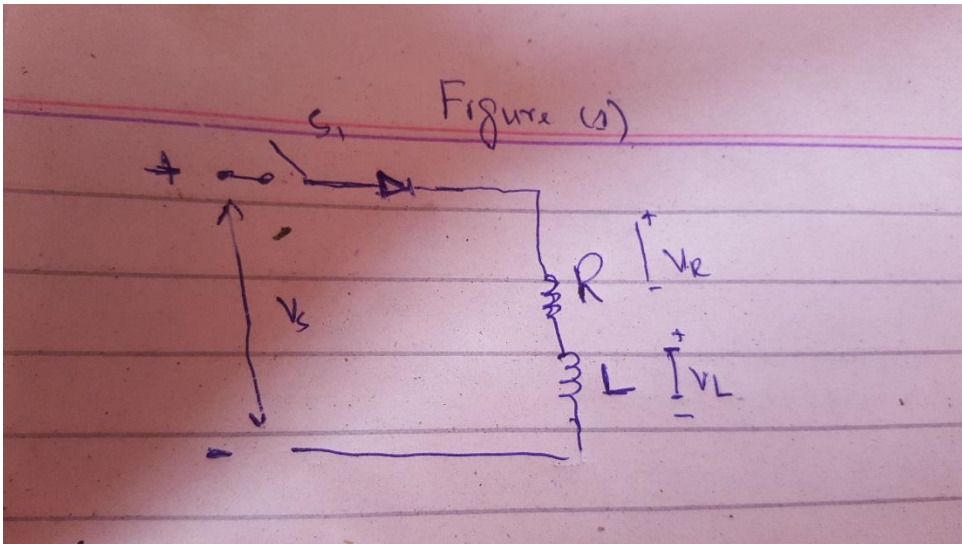 Figure (1)
S1
+
VS
R
+
VR
-
L
+
VL
-
-